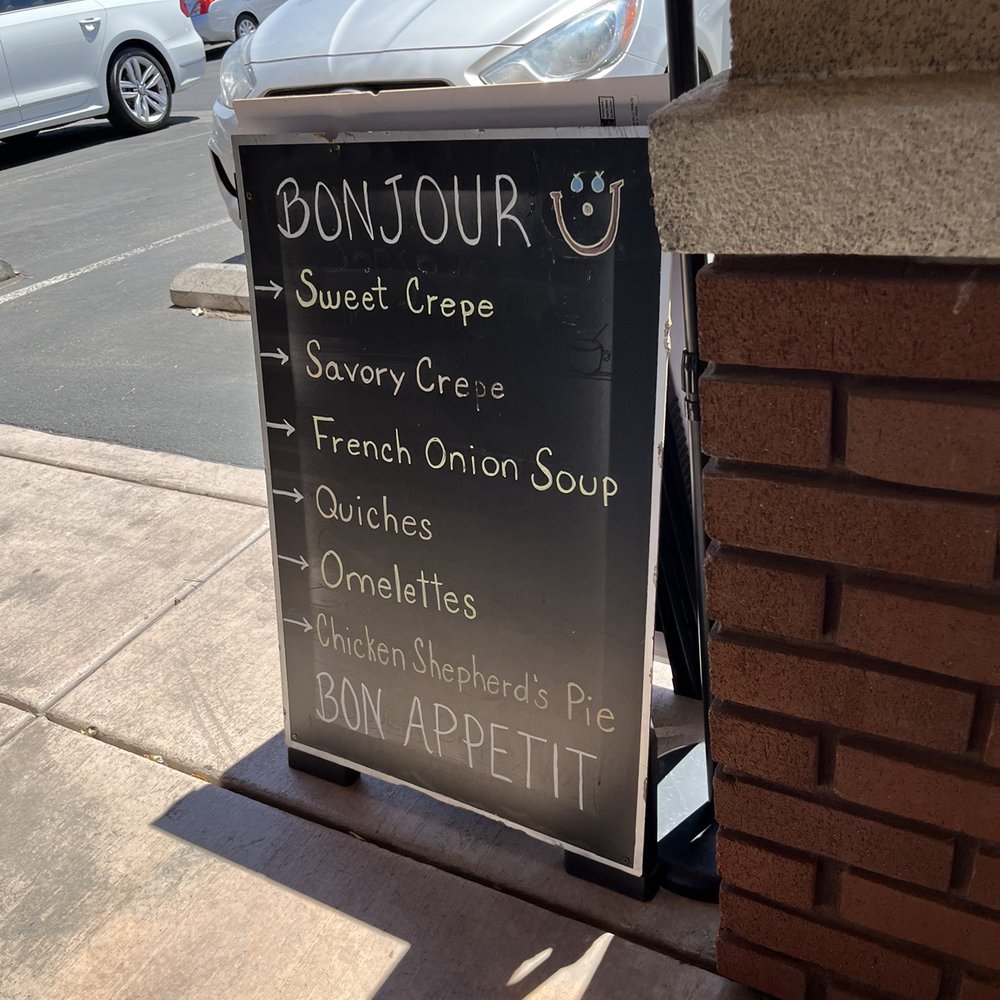 BONJOUR
→ Sweet Crepe
→ Savory Crepe
→ French Onion Soup
→ Quiches
→ Omelettes
→ Chicken Shepherd's Pie
BON APPETIT